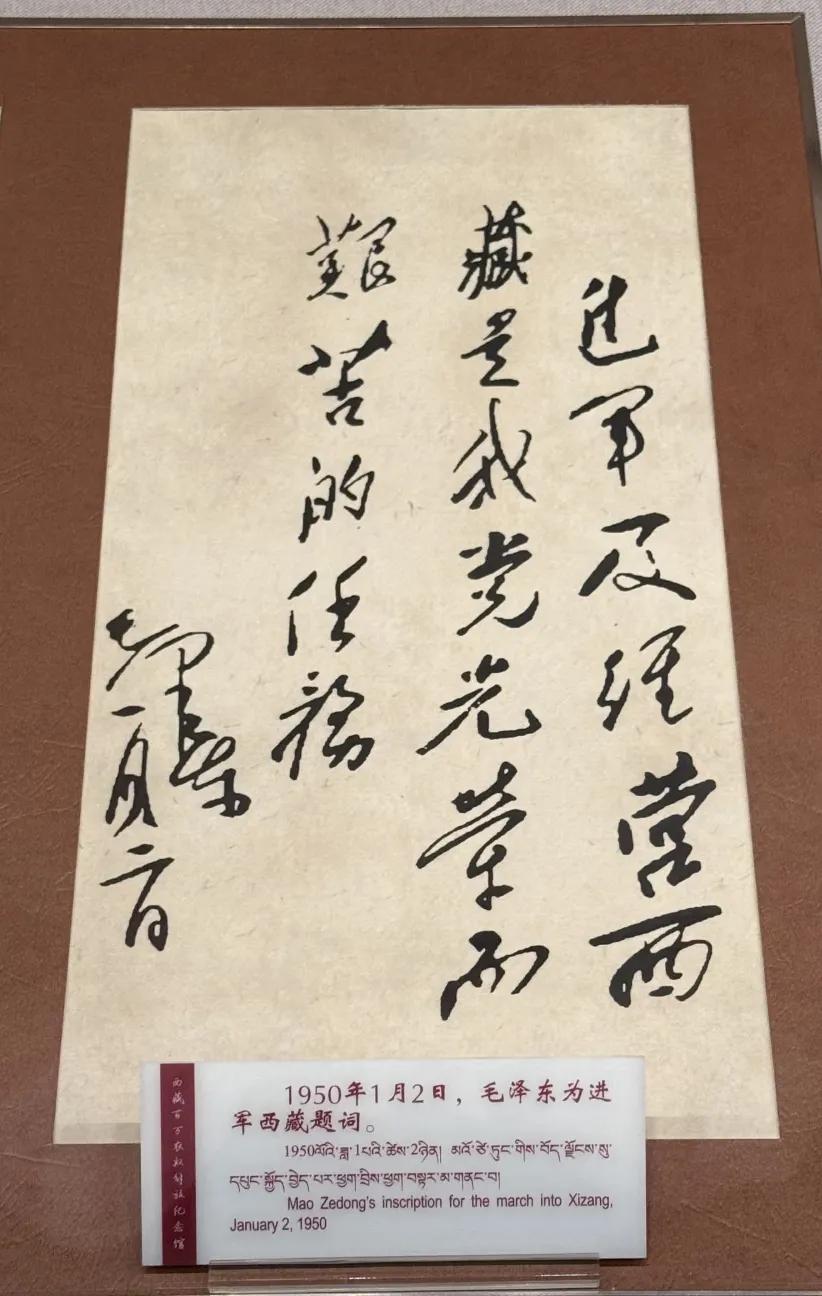 进军及经营西
藏是我党光荣而
艰苦的任务
毛泽东
一月二日
西藏百万农奴解放纪念馆
1950年1月2日，毛泽东为进
军西藏题词。
1950ལོའི་ཟླ་1པའི་ཚེས་2ཉིན། མའོ་ཙེ་ཏུང་གིས་བོད་ལྗོངས་སུ་
དཔུང་སྐྱོད་བྱེད་པར་ཕྱག་བྲིས་ཕྱག་བསྟར་མ་གནང་བ།
Mao Zedong's inscription for the march into Xizang,
January 2, 1950